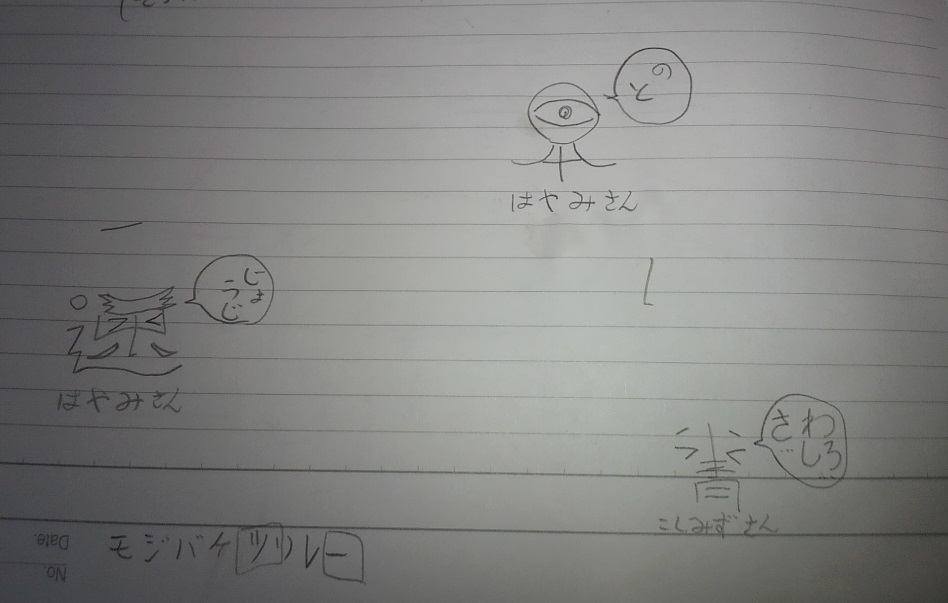 の
と
はやみさん
じょ
うじ
はやみさん
さわ
しろ
こしみずさん
モジバケ
Date
No.